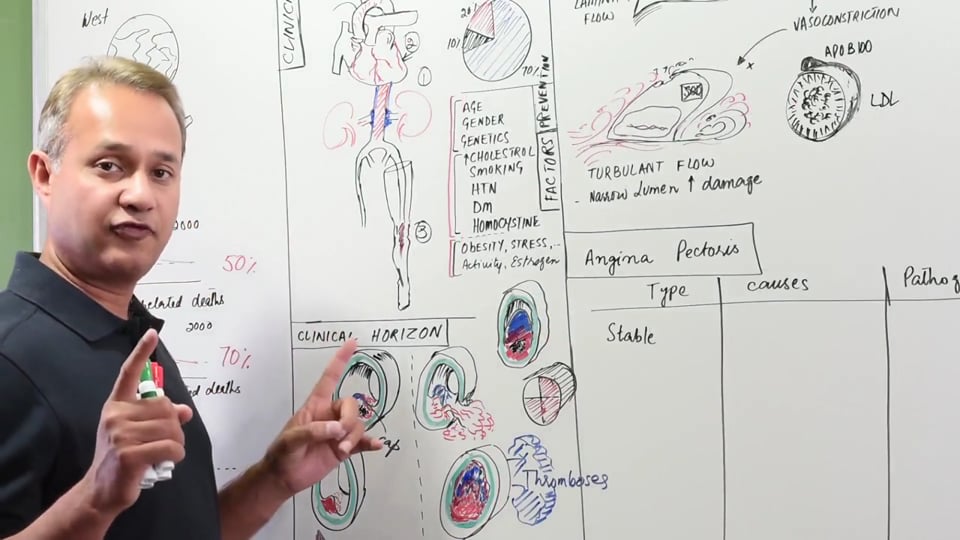 West
2000
50%
deaths
2000
70%
deaths
CLINICAL
20%
10%
70%
2
1
3
AGE
GENDER
GENETICS
↑CHOLESTROL
SMOKING
HTN
DM
HOMOCYSTINE
OBESITY, STRESS,..
Activity, Estrogen
FACTORS
PREVENTAN
CLINICAL HORIZON
Cap
Thromboses
FLOW
VASOCONSTRICTION
APOB100
LDL
TURBULANT FLOW
- Narrow Lumen ↑ damage
Angina Pectosis
Type
causes
Pathog
Stable